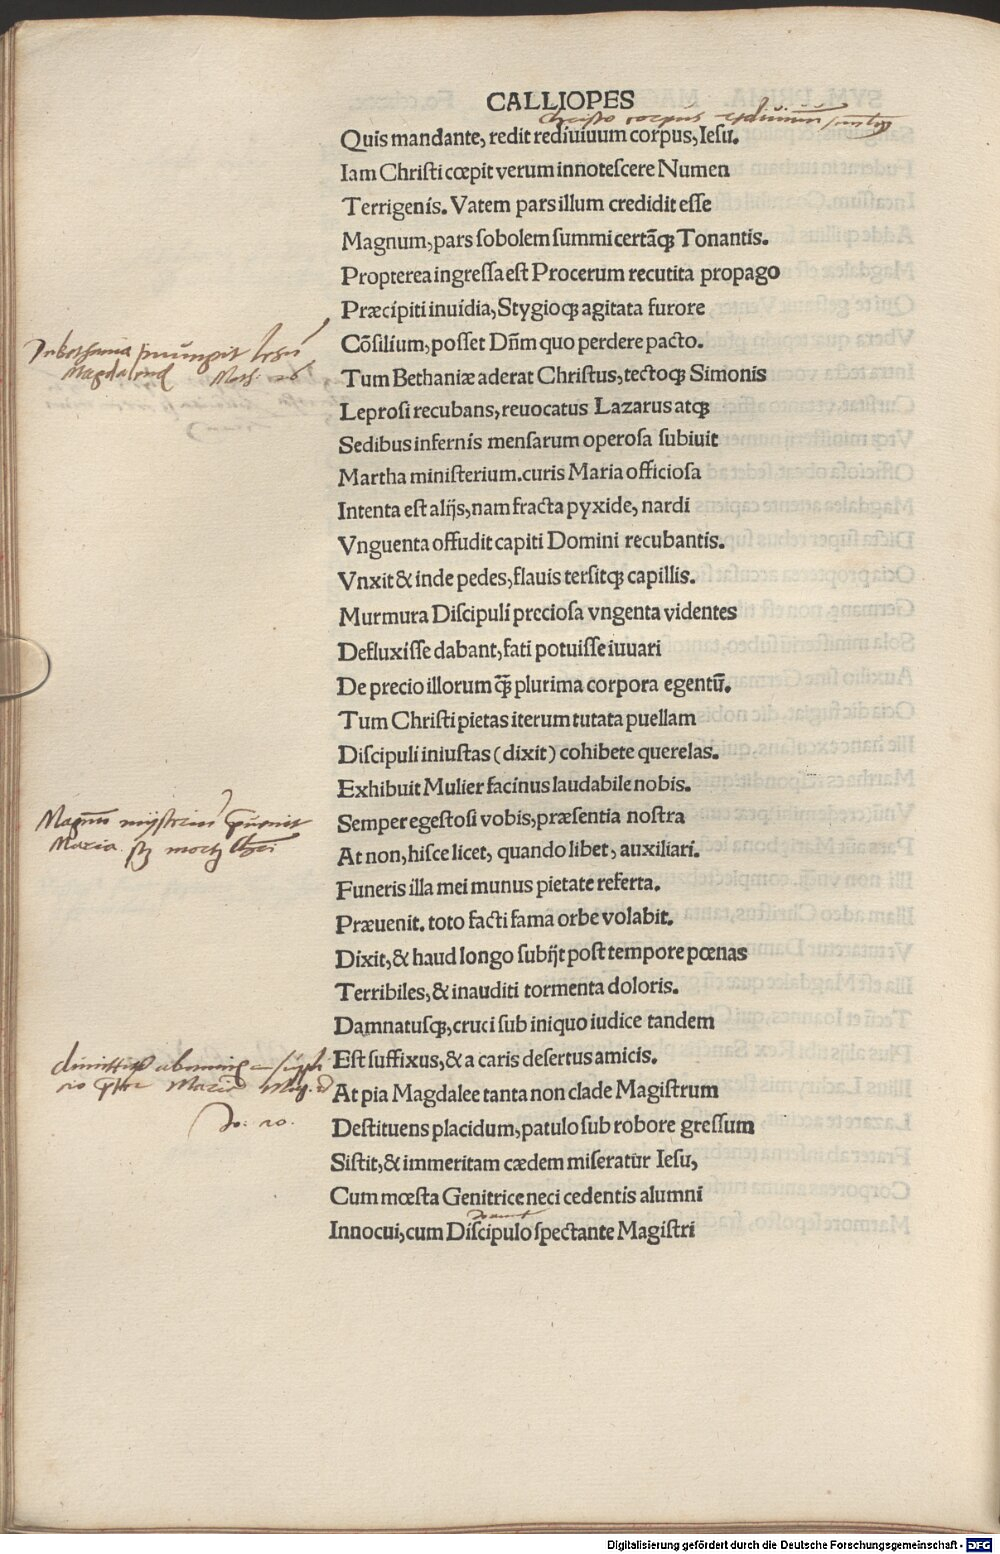 CALLIOPES
Christo corpus
Quis mandante, redit rediuiuum corpus, Iesu.
Iam Christi cœpit verum innotescere Numen
Terrigenis. Vatem pars illum credidit esse
Magnum, pars sobolem summi certãq; Tonantis.
Propterea ingressa est Procerum recutita propago
Præcipiti inuidia, Stygioq; agitata furore
Cõsilium, posset Dñm quo perdere pacto.
Tum Bethaniæ aderat Christus, tectoq; Simonis
Leprosi recubans, reuocatus Lazarus atq;
Sedibus infernis mensarum operosa subiuit
Martha ministerium. curis Maria officiosa
Intenta est alijs, nam fracta pyxide, nardi
Vnguenta offudit capiti Domini recubantis.
Vnxit & inde pedes, flauis tersitq; capillis.
Murmura Discipuli preciosa vngenta videntes
Defluxisse dabant, fati potuisse iuuari
De precio illorum q̃ plurima corpora egentũ.
Tum Christi pietas iterum tutata puellam
Discipuli iniustas (dixit) cohibete querelas.
Exhibuit Mulier facinus laudabile nobis.
Semper egestosi vobis, præsentia nostra
At non, hisce licet, quando libet, auxiliari.
Funeris illa mei munus pietate referta.
Præuenit. toto facti fama orbe volabit.
Dixit, & haud longo subijt post tempore pœnas
Terribiles, & inauditi tormenta doloris.
Damnatusq;, cruci sub iniquo iudice tandem
Est suffixus, & a caris desertus amicis.
At pia Magdalee tanta non clade Magistrum
Destituens placidum, patulo sub robore gressum
Sistit, & immeritam cædem miseratur Iesu,
Cum mœsta Genitrice neci cedentis alumni
Innocui, cum Discipulo spectante Magistri
In bethania
Magdalena Math. 26
Maria
Maria Mag.
Jo: 20.
Digitalisierung gefördert durch die Deutsche Forschungsgemeinschaft - DFG